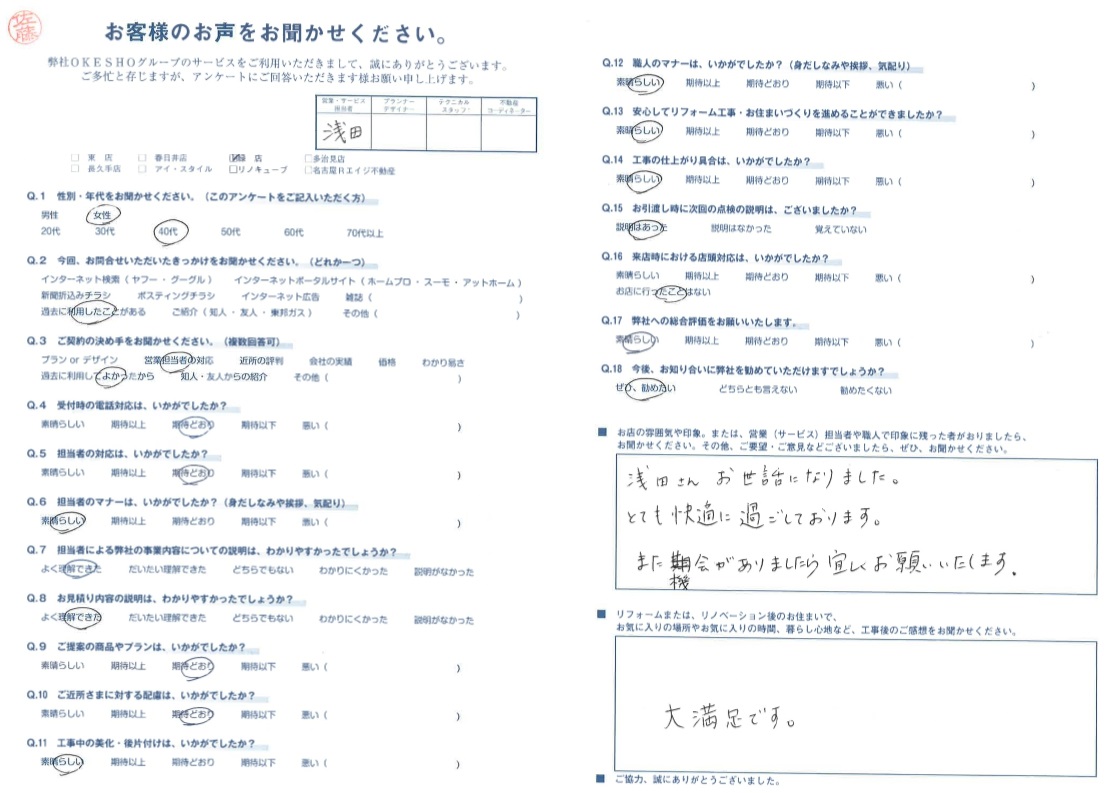 佐藤
お客様のお声をお聞かせください。
弊社OKESHOグループのサービスをご利用いただきまして、誠にありがとうございます。
ご多忙と存じますが、アンケートにご回答いただきます様お願い申し上げます。
営業・サービス担当者 プランナーデザイナー テクニカルスタッフ 不動産コーディネーター
浅田
□ 東 店 □ 春日井店 □緑 店 □多治見店
□ 長久手店 □ アイ・スタイル □リノキューブ □名古屋Rエイジ不動産
Q.1 性別・年代をお聞かせください。(このアンケートをご記入いただく方)
男性 女性
20代 30代 40代 50代 60代 70代以上
Q.2 今回、お問合せいただいたきっかけをお聞かせください。(どれか一つ)
インターネット検索(ヤフー・グーグル) インターネットポータルサイト(ホームプロ・スーモ・アットホーム)
新聞折込みチラシ ポスティングチラシ インターネット広告 雑誌( )
過去に利用したことがある ご紹介(知人・友人・東邦ガス) その他( )
Q.3 ご契約の決め手をお聞かせください。(複数回答可)
プラン or デザイン 営業担当者の対応 近所の評判 会社の実績 価格 わかり易さ
過去に利用してよかったから 知人・友人からの紹介 その他( )
Q.4 受付時の電話対応は、いかがでしたか?
素晴らしい 期待以上 期待どおり 期待以下 悪い( )
Q.5 担当者の対応は、いかがでしたか?
素晴らしい 期待以上 期待どおり 期待以下 悪い( )
Q.6 担当者のマナーは、いかがでしたか?(身だしなみや挨拶、気配り)
素晴らしい 期待以上 期待どおり 期待以下 悪い( )
Q.7 担当者による弊社の事業内容についての説明は、わかりやすかったでしょうか?
よく理解できた だいたい理解できた どちらでもない わかりにくかった 説明がなかった
Q.8 お見積り内容の説明は、わかりやすかったでしょうか?
よく理解できた だいたい理解できた どちらでもない わかりにくかった 説明がなかった
Q.9 ご提案の商品やプランは、いかがでしたか?
素晴らしい 期待以上 期待どおり 期待以下 悪い( )
Q.10 ご近所さまに対する配慮は、いかがでしたか?
素晴らしい 期待以上 期待どおり 期待以下 悪い( )
Q.11 工事中の美化・後片付けは、いかがでしたか?
素晴らしい 期待以上 期待どおり 期待以下 悪い( )
Q.12 職人のマナーは、いかがでしたか?(身だしなみや挨拶、気配り)
素晴らしい 期待以上 期待どおり 期待以下 悪い( )
Q.13 安心してリフォーム工事・お住まいづくりを進めることができましたか?
素晴らしい 期待以上 期待どおり 期待以下 悪い( )
Q.14 工事の仕上がり具合は、いかがでしたか?
素晴らしい 期待以上 期待どおり 期待以下 悪い( )
Q.15 お引渡し時に次回の点検の説明は、ございましたか?
説明はあった 説明はなかった 覚えていない
Q.16 来店時における店頭対応は、いかがでしたか?
素晴らしい 期待以上 期待どおり 期待以下 悪い( )
お店に行ったことはない
Q.17 弊社への総合評価をお願いいたします。
素晴らしい 期待以上 期待どおり 期待以下 悪い( )
Q.18 今後、お知り合いに弊社を勧めていただけますでしょうか?
ぜひ、勧めたい どちらとも言えない 勧めたくない
■ お店の雰囲気や印象。または、営業(サービス)担当者や職人で印象に残った者がおりましたら、
お聞かせください。その他、ご要望・ご意見などございましたら、ぜひ、お聞かせください。
浅田さん お世話になりました。
とても快適に過ごしております。
また 会がありましたら宜しくお願いいたします.
機
■ リフォームまたは、リノベーション後のお住まいで、
お気に入りの場所やお気に入りの時間、暮らし心地など、工事後のご感想をお聞かせください。
大満足です。
■ ご協力、誠にありがとうございました。